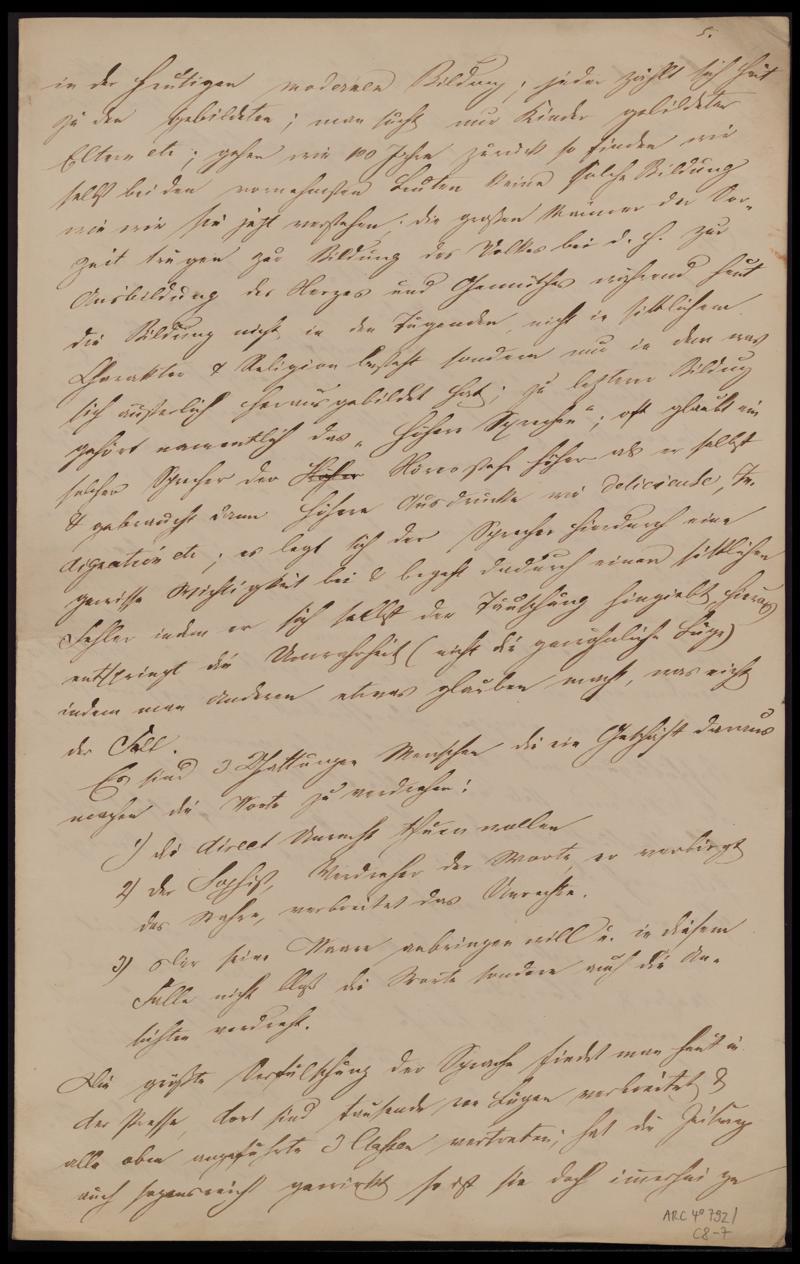 5.
in der heutigen modernen Bildung; jeder zählt sich heut
zu den gebildeten; man sucht nur Kinder gebildeter
Eltern etc; gehen wir 100 Jahre zurück so finden wir
selbst bei den vornehmsten Leuten keine solche Bildung
wie wir sie jetzt verstehen; die großen Männer der Vor-
zeit trugen zur Bildung des Volkes bei d. h. zur
Ausbildung des Herzens und Gemüthes während heut
die Bildung nicht in den Tugenden, nicht in sittlichem
Charakter & Religion besteht sondern nur in dem was
sich äußerlich herausgebildet hat; zu letzterer Bildung
gehört namentlich das „höhere Sprechen"; oft glaubt ein
solcher Sprecher der Höherer steht höher als er selbst
& gebraucht dann höhere Ausdrücke wie delicieuse, In-
dignation etc; es legt sich der Sprecher hierdurch eine
gewisse Wichtigkeit bei & begeht dadurch einen sittlichen
Fehler indem er sich selbst der Täuschung hingiebt, hieraus
entspringt die Unwahrheit (nicht die gewöhnliche Lüge)
indem man Anderen etwas glauben macht, was nicht
der Fall.
Es sind 3 Gattungen Menschen die ein Geschäft daraus
machen die Worte zu verdrehen:
1) die direct Unrecht thuen wollen
2) der Sophist, Verdreher der Worte, er verbirgt
das Wahre, verbreitet das Unrechte.
3) Die seine Waare anbringen will u. in diesem
Falle nicht bloß die Worte sondern auch die An-
sichten verdreht.
Die größte Verfälschung der Sprache findet man heut in
der Presse, dort sind tausende von Lügen verbreitet &
alle oben angeführte 3 Classen vertreten; hat die Zeitung
auch segensreich gewirkt so ist sie doch immerhin ge
ARC 4° 792/
C8-7